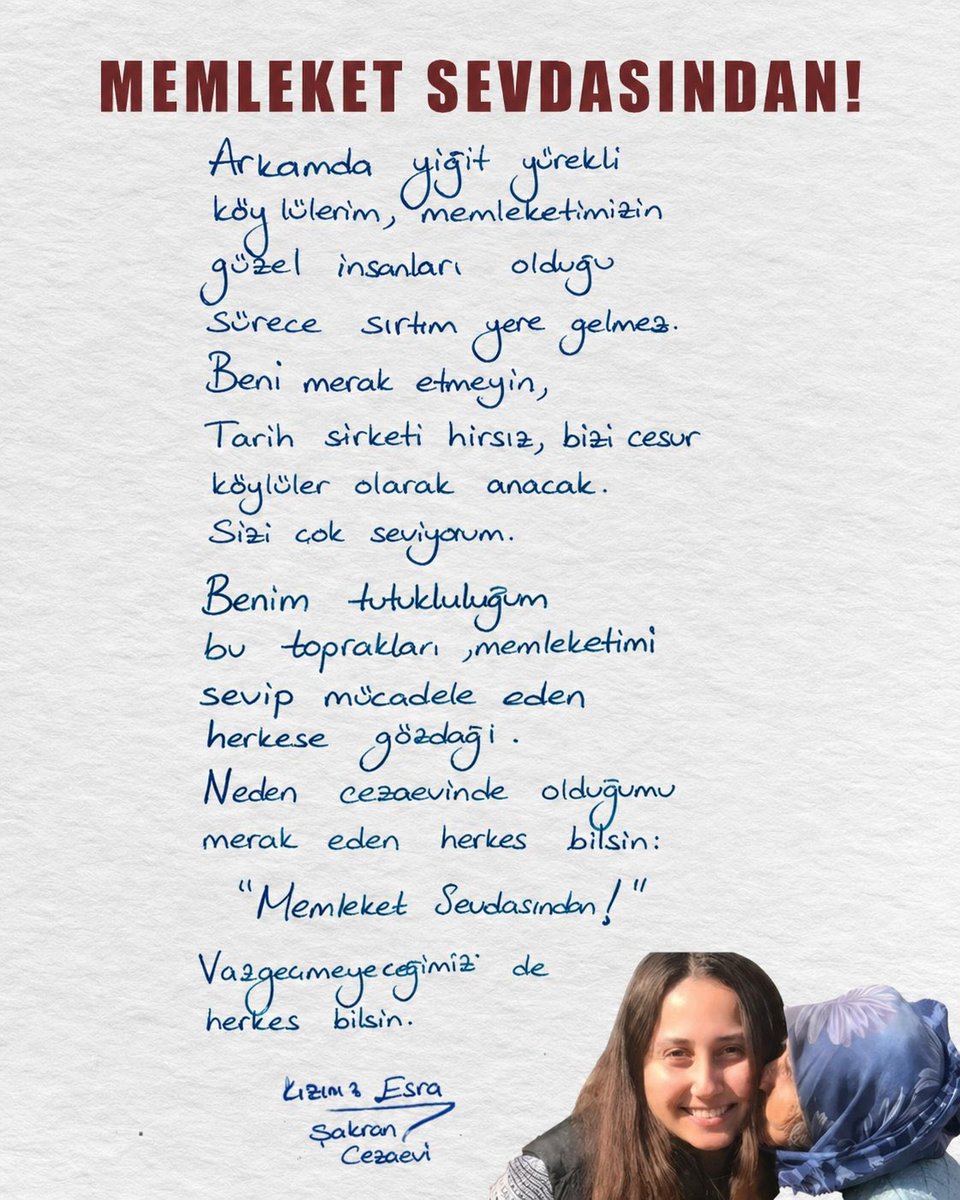 MEMLEKET SEVDASINDAN!
Arkamda yiğit yürekli
köylülerim, memleketimizin
güzel insanları olduğu
sürece sırtım yere gelmez.
Beni merak etmeyin,
Tarih sirketi hirsız, bizi cesur
köylüler olarak anacak.
Sizi çok seviyorum.
Benim tutukluluğum
bu toprakları ,memleketimi
sevip mücadele eden
herkese gözdaği.
Neden cezaevinde olduğumu
merak eden herkes bilsin:
"Memleket Sevdasından!"
Vazgeçmeyeceğimiz de
herkes bilsin.
Kızınız Esra
Şakran
Cezaevi